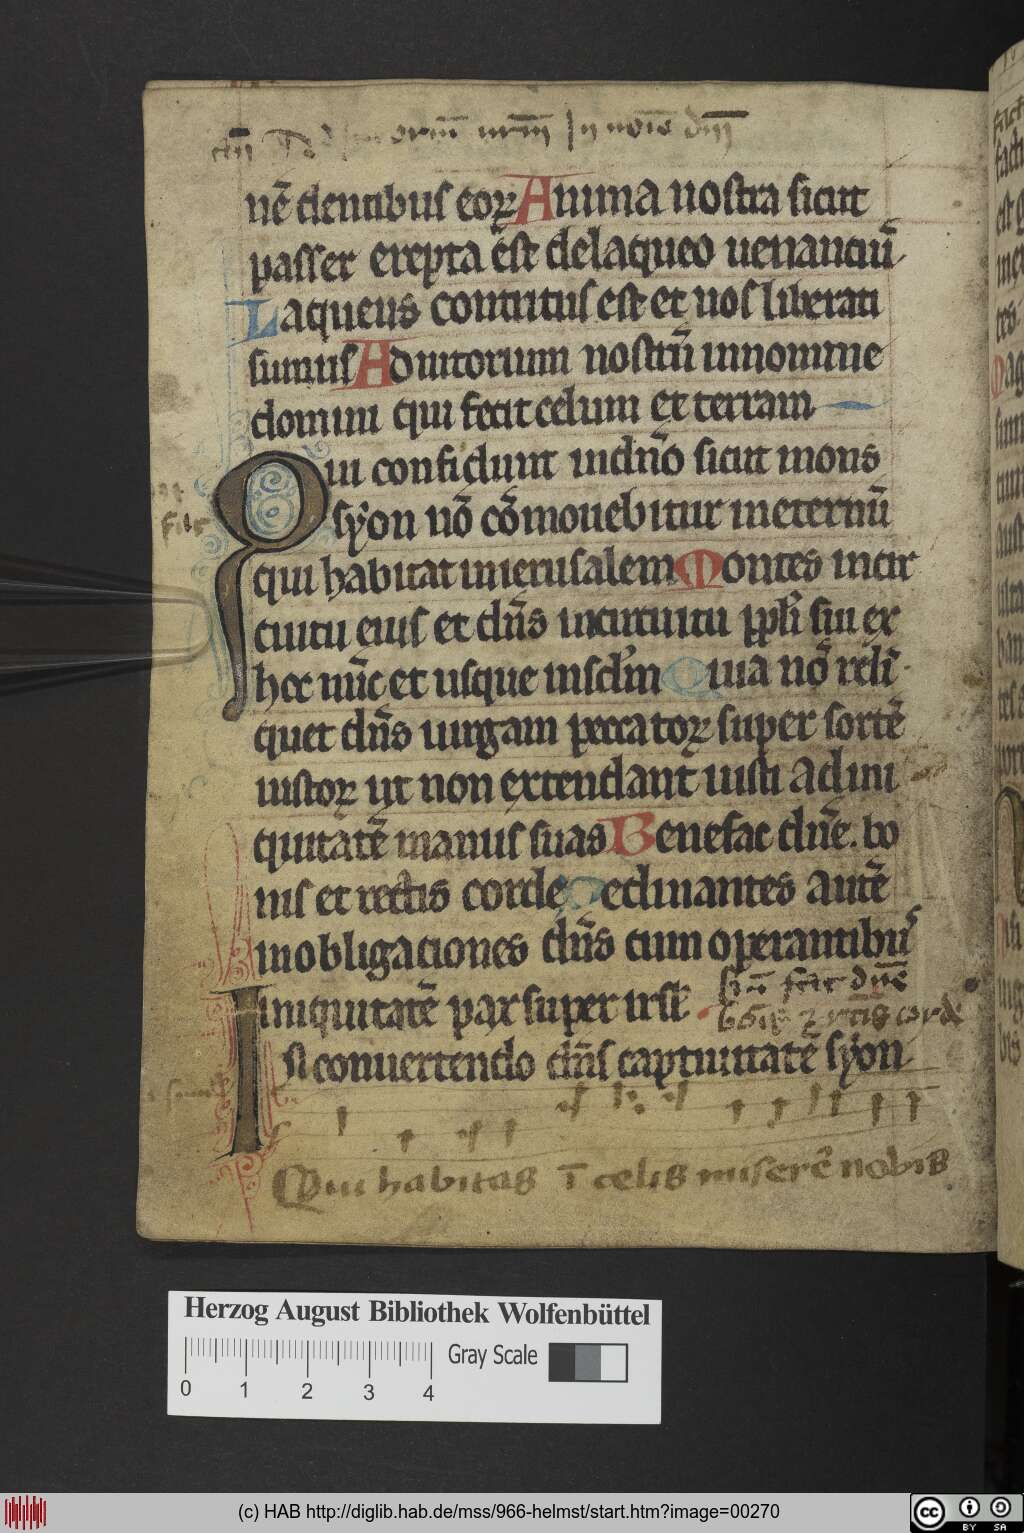 nr̄m In noīe dn̄i
nē dentibus eoꝝ Anima nostra sicut
passer erepta est delaqueo uenantiū
Laqueus contritus est et nos liberati
sumus Adiutorium nostrū innomine
domini qui fecit celum et terram
Qui confidunt indn̄o sicut mons
syon nō cōmouebitur ineternū
qui habitat inierusalem Montes incir
cuitu eius et dn̄s incircuitu ppl̓i sui ex
hoc nūc et usque inscl̓m Quia nō relī
quet dn̄s uirgam peccatoꝝ super sortē
iustoꝝ ut non extendant iusti adini
quitatē manus suas Benefac dn̄e. bo
nis et rectis corde Declinantes autē
inobligationes dn̄s cum operantibus
iniquitatē pax super isrl̓
bn̄ fac dn̄e
bōis ⁊ rctīs cord
In conuertendo dn̄s captiuitatē syon
Qui habitas ī celis miserē nobis
Herzog August Bibliothek Wolfenbüttel
Gray Scale
0 1 2 3 4
(c) HAB http://diglib.hab.de/mss/966-helmst/start.htm?image=00270
cc BY SA